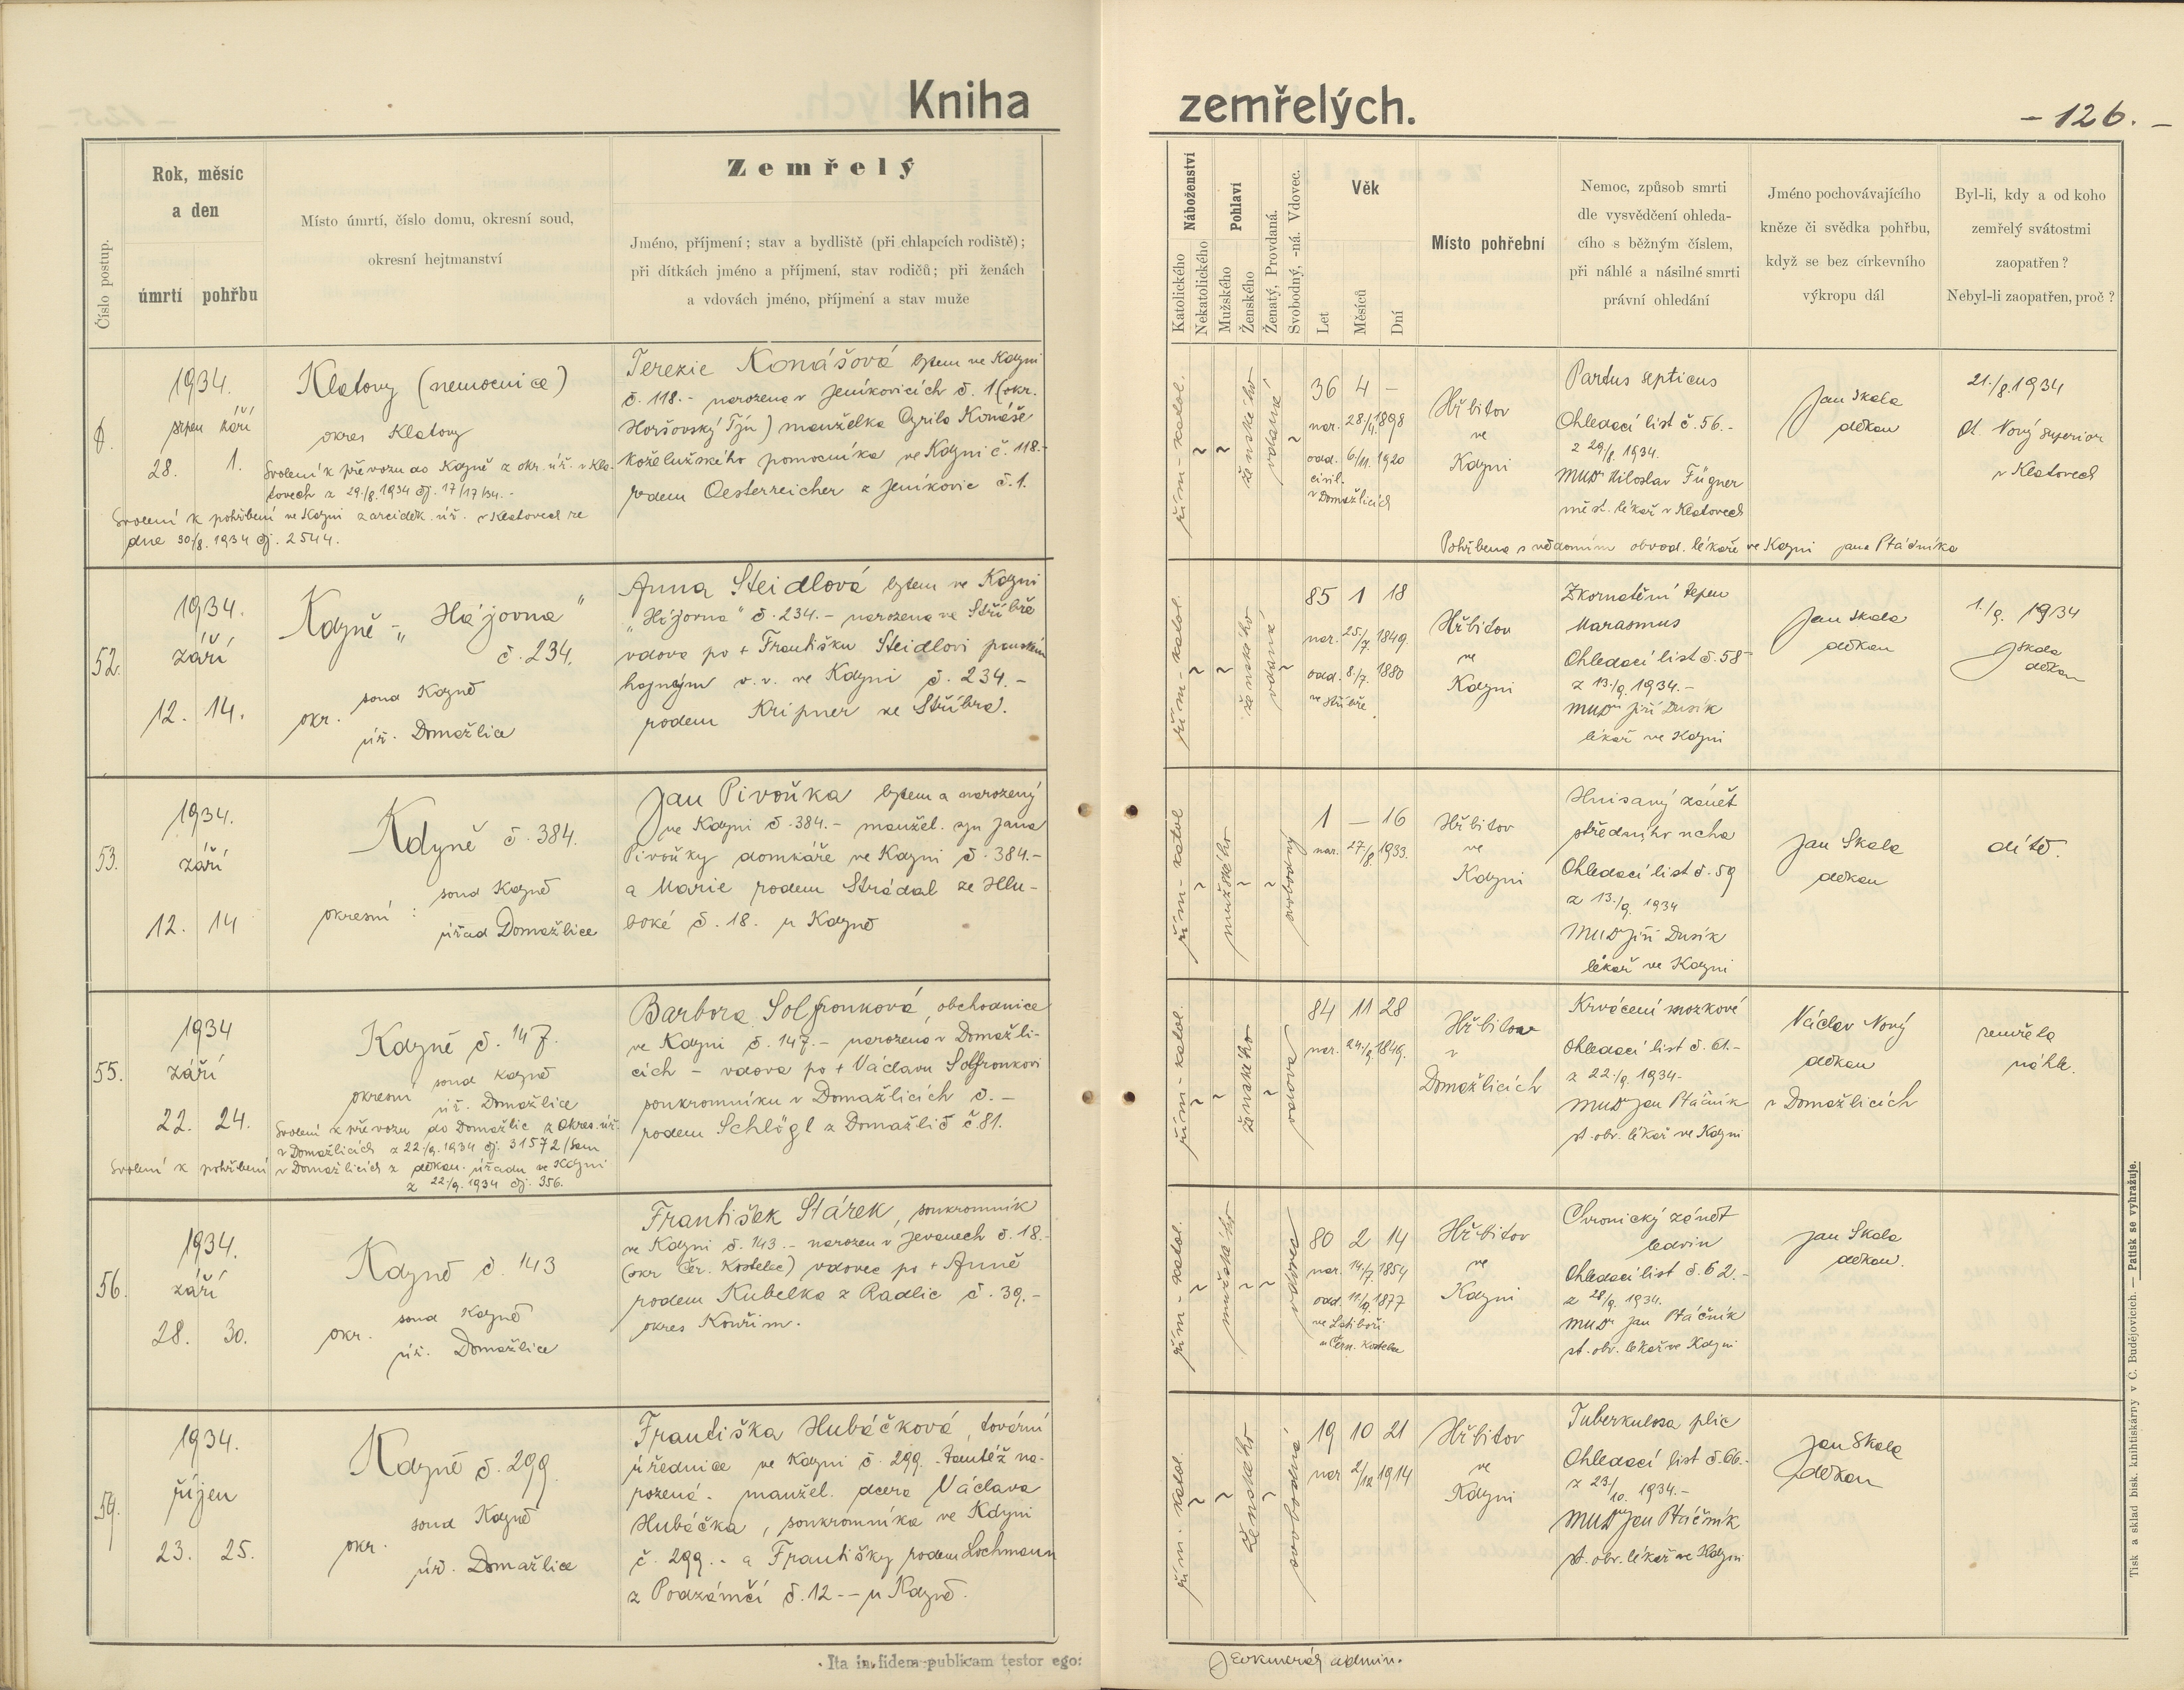 Kniha zemřelých.
- 126. -
Číslo postup.
Rok, měsíc
a den
úmrtí pohřbu
Místo úmrtí, číslo domu, okresní soud,
okresní hejtmanství
Zemřelý
Jméno, příjmení; stav a bydliště (při chlapcích rodiště);
při dítkách jméno a příjmení, stav rodičů; při ženách
a vdovách jméno, příjmení a stav muže
Náboženství
Katolického
Nekatolického
Pohlaví
Mužského
Ženského
Ženatý, Provdaná.
Svobodný, -ná. Vdovec.
Věk
Let
Měsíců
Dní
Místo pohřební
Nemoc, způsob smrti
dle vysvědčení ohleda-
cího s běžným číslem,
při náhlé a násilné smrti
právní ohledání
Jméno pochovávajícího
kněze či svědka pohřbu,
když se bez církevního
výkropu dál
Byl-li, kdy a od koho
zemřelý svátostmi
zaopatřen?
Nebyl-li zaopatřen, proč?
1934.
srpen září
28. 1.
Klatovy (nemocnice)
okres Klatovy
Svolení k převozu do Kdyně z okr. úř. v Kla-
tovech z 29./8. 1934 čj. 17/17/34. -
Svolení k pohřbení ve Kdyni z arciděk. úř. v Klatovech ze
dne 30./8. 1934 čj. 2544.
Terezie Konášová bytem ve Kdyni
č. 118. - narozena v Jeníkovicích č. 1 (okr.
Horšovský Týn) manželka Cyrila Konáše
koželužského pomocníka ve Kdyni č. 118. -
rodem Oesterreicher z Jeníkovic č. 1.
řím - katol.
ženského
vdaná
36 4 -
nar. 28/4. 1898
odd. 6/11. 1920
civil.
v Domažlicích
Hřbitov
ve
Kdyni
Partus septicus
Ohledací list č. 56. -
z 29/8. 1934.
MUDr Miloslav Fügner
měst. lékař v Klatovech
Jan Skala
děkan
21./8. 1934
Nový superior
v Klatovech
Pohřbena s vědomím obvod. lékaře ve Kdyni Jana Ptáčníka
52.
1934.
září
12. 14.
Kdyně - „Hájovna"
č. 234.
okr. soud Kdyně
úř. Domažlice
Anna Steidlová bytem ve Kdyni
„Hájovna" č. 234. - narozena ve Stříbře
vdova po + Františku Steidlovi panském
hajném v. v. ve Kdyni č. 234. -
rodem Kripner ze Stříbra.
řím - katol.
ženského
vdaná
85 1 18
nar. 25/7. 1849.
odd. 8./7. 1880
ve Stříbře.
Hřbitov
ve
Kdyni
Zkornatění tepen
Marasmus
Ohledací list č. 58 -
z 13./9. 1934. -
MUDr Jiří Dusík
lékař ve Kdyni
Jan Skala
děkan
1./9. 1934
JSkala
děkan
53.
1934.
září
12. 14
Kdyně č. 384.
okresní : soud Kdyně
úřad Domažlice
Jan Pivoňka bytem a narozený
ve Kdyni č. 384. - manžel. syn Jana
Pivoňky domkáře ve Kdyni č. 384. -
a Marie rodem Strádal ze Hlu-
boké č. 18. u Kdyně
řím - katol
mužského
svobodný
1 - 16
nar. 27/8. 1933.
Hřbitov
ve
Kdyni
Hnisavý zánět
středního ucha
Ohledací list č. 59
z 13./9. 1934
MUDr Jiří Dusík
lékař ve Kdyni
Jan Skala
děkan
dítě.
55.
1934
září
22. 24.
Kdyně č. 147.
okresní soud Kdyně
úř. Domažlice
Svolení k převozu do Domažlic z Okres. úř.
v Domažlicích z 22./9. 1934 čj. 31572/Sam
Svolení k pohřbení v Domažlicích z děkan. úřadu ve Kdyni
z 22/9. 1934 čj. 356.
Barbora Solfronková, obchodnice
ve Kdyni č. 147. - narozena v Domažli-
cích - vdova po + Václavu Solfronkovi
soukromníku v Domažlicích č. -
rodem Schlögl z Domažlic č. 81.
řím - katol.
ženského
vdova
84 11 28
nar. 24./9. 1849.
Hřbitov
v
Domažlicích
Krvácení mozkové
Ohledací list č. 61. -
z 22./9. 1934 -
MUDr Jan Ptáčník
st. obv. lékař ve Kdyni
Václav Nový
děkan
v Domažlicích
zemřela
náhle.
56.
1934.
září
28. 30.
Kdyně č. 143
okr. soud Kdyně
úř. Domažlice
František Stárek, soukromník
ve Kdyni č. 143. - narozen v Jevanech č. 18. -
(okr Čer. Kostelec) vdovec po + Anně
rodem Kubelka z Radlic č. 39. -
okres Kouřim.
řím - katol.
mužského
vdovec
80 2 14
nar. 14/7. 1854
odd. 11/9. 1877
ve Lstiboři
u Čern. Kostelce
Hřbitov
ve
Kdyni
Chronický zánět
ledvin
Ohledací list č. 62. -
z 28/9. 1934.
MUDr Jan Ptáčník
st. obv. lékař ve Kdyni
Jan Skala
děkan.
59.
1934.
říjen
23. 25.
Kdyně č. 299
okr. soud Kdyně
úř. Domažlice
Františka Hubáčková, tovární
úřednice ve Kdyni č. 299. tamtéž na-
rozená. manžel. dcera Václava
Hubáčka, soukromníka ve Kdyni
č. 299. - a Františky rodem Lochmann
z Podzámčí č. 12 -- u Kdyně.
řím. katol.
ženského
svobodná
19 10 21
nar 2/12 1914
Hřbitov
ve
Kdyni
Tuberkulosa plic
Ohledací list č. 66. -
z 23/10. 1934. -
MUDr Jan Ptáčník
st. obv. lékař ve Kdyni
Jan Skala
děkan
Ita in fidem publicam testor ego:
admin.
Tisk a sklad bisk. knihtiskárny v Č. Budějovicích. — Patisk se vyhražuje.